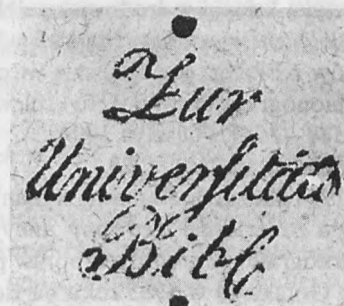 Zur
Universitäts
Bibl